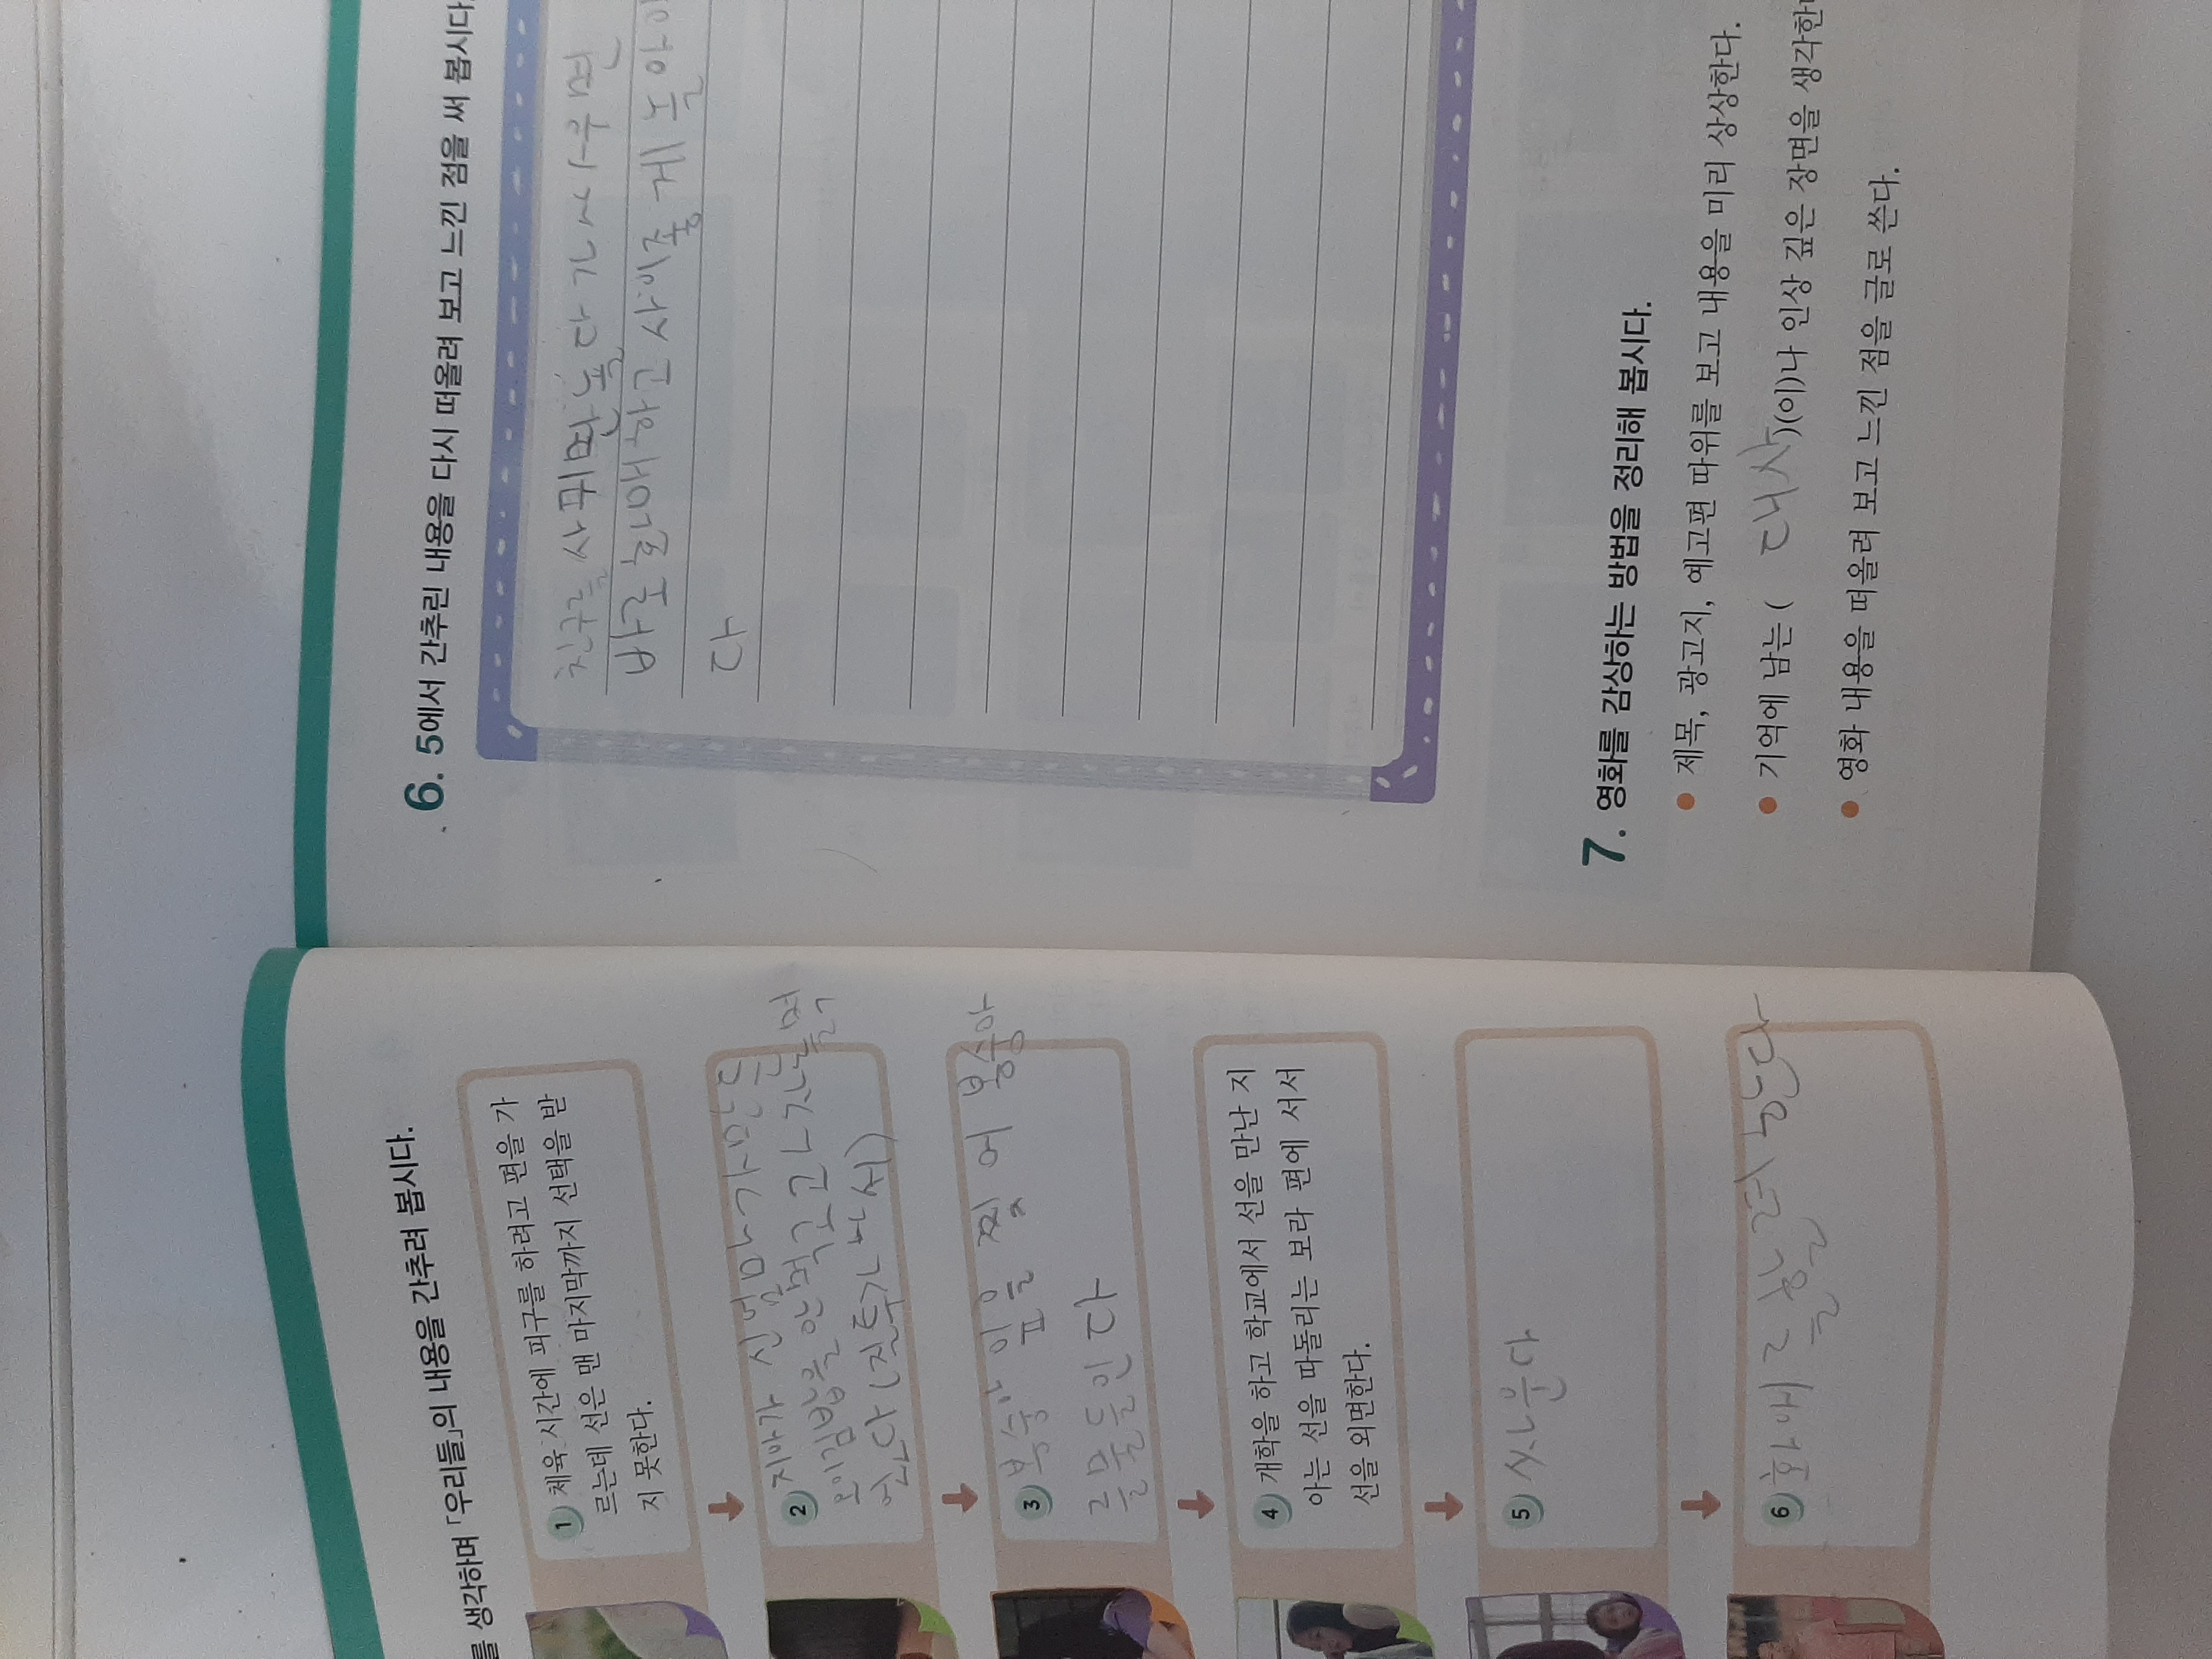 를 생각하며 「우리들」의 내용을 간추려 봅시다.
1 체육 시간에 피구를 하려고 편을 가
르는데 선은 맨 마지막까지 선택을 받
지 못한다.
2 지아가 선 엄마가 만든
오이김밥을 안 먹고
(질투가 나서)
3 봉숭아 잎을 찧어 봉숭아
물들인다
4 개학을 하고 학교에서 선을 만난 지
아는 선을 따돌리는 보라 편에 서서
선을 외면한다.
5 싸운다
6 화해를 할려 한다
6. 5에서 간추린 내용을 다시 떠올려 보고 느낀 점을 써 봅시다.
친구를 사귀면 놀다가 싸우면
바로 화해하고 사이좋게 놀아야
다
7. 영화를 감상하는 방법을 정리해 봅시다.
• 제목, 광고지, 예고편 따위를 보고 내용을 미리 상상한다.
• 기억에 남는 ( 대사 )(이)나 인상 깊은 장면을 생각한
• 영화 내용을 떠올려 보고 느낀 점을 글로 쓴다.